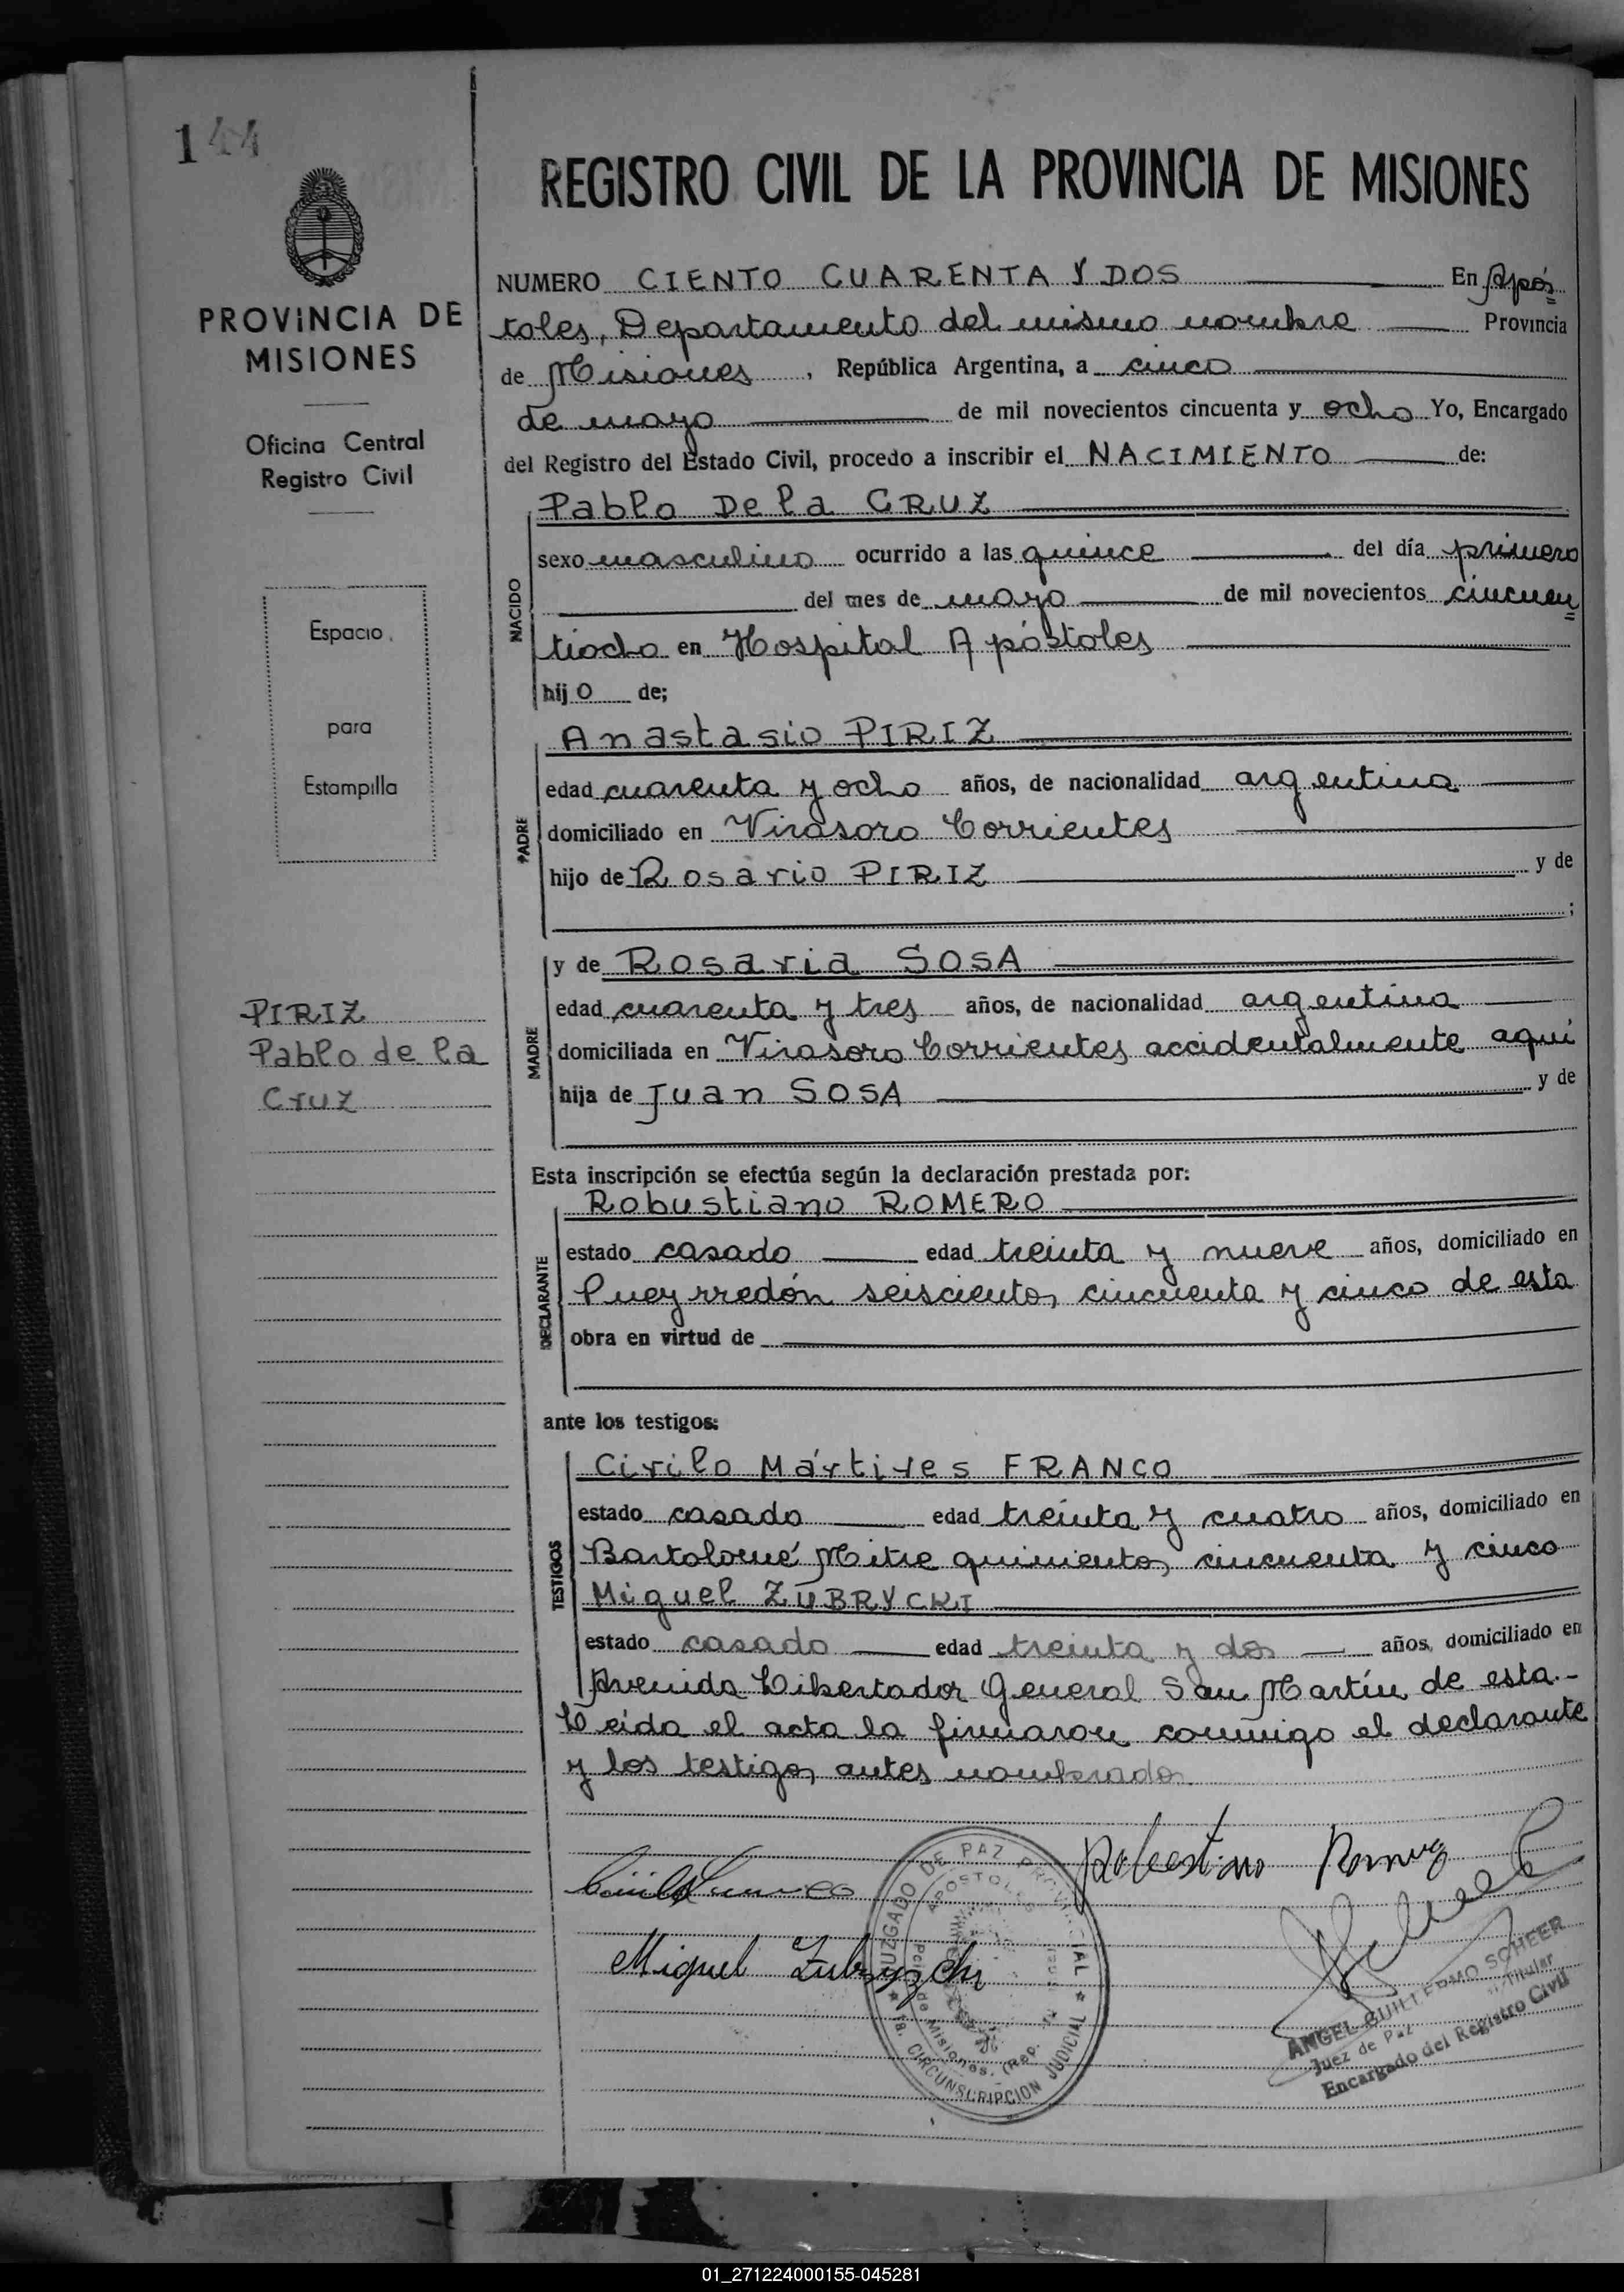 144
REGISTRO CIVIL DE LA PROVINCIA DE MISIONES
PROVINCIA DE
MISIONES
Oficina Central
Registro Civil
Espacio
para
Estampilla
PIRIZ
Pablo de la
Cruz
NUMERO CIENTO CUARENTA Y DOS En Após
toles, Departamento del mismo nombre Provincia
de Misiones, República Argentina, a cinco
de mayo de mil novecientos cincuenta y ocho Yo, Encargado
del Registro del Estado Civil, procedo a inscribir el NACIMIENTO de:
Pablo De la CRUZ
NACIDO
sexo masculino ocurrido a las quince del día primero
del mes de mayo de mil novecientos cincuen
tiocho en Hospital Apóstoles
hijo de;
Anastasio PIRIZ
PADRE
edad cuarenta y ocho años, de nacionalidad argentina
domiciliado en Virasoro Corrientes
hijo de Rosario PIRIZ y de
;
y de Rosaria SOSA
MADRE
edad cuarenta y tres años, de nacionalidad argentina
domiciliada en Virasoro Corrientes accidentalmente aquí
hija de Juan SOSA y de
Esta inscripción se efectúa según la declaración prestada por:
Robustiano ROMERO
DECLARANTE
estado casado edad treinta y nueve años, domiciliado en
Pueyrredón seiscientos cincuenta y cinco de esta
obra en virtud de
ante los testigos:
Cirilo Mártires FRANCO
TESTIGOS
estado casado edad treinta y cuatro años, domiciliado en
Bartolomé Mitre quinientos cincuenta y cinco
Miguel ZUBRYCKI
estado casado edad treinta y dos años, domiciliado en
Avenida Libertador General San Martín de esta.-
Leída el acta la firmaron conmigo el declarante
y los testigos antes nombrados.
Robustiano Romero
Cirilo Franco
Miguel Zubrycki
JUZGADO DE PAZ PROVINCIAL
APOSTOLES
Pcia. de Misiones. (Rep.
1a. CIRCUNSCRIPCION JUDICIAL
ANGEL GUILLERMO SCHEER
Juez de Paz Titular
Encargado del Registro Civil
01_271224000155-045281